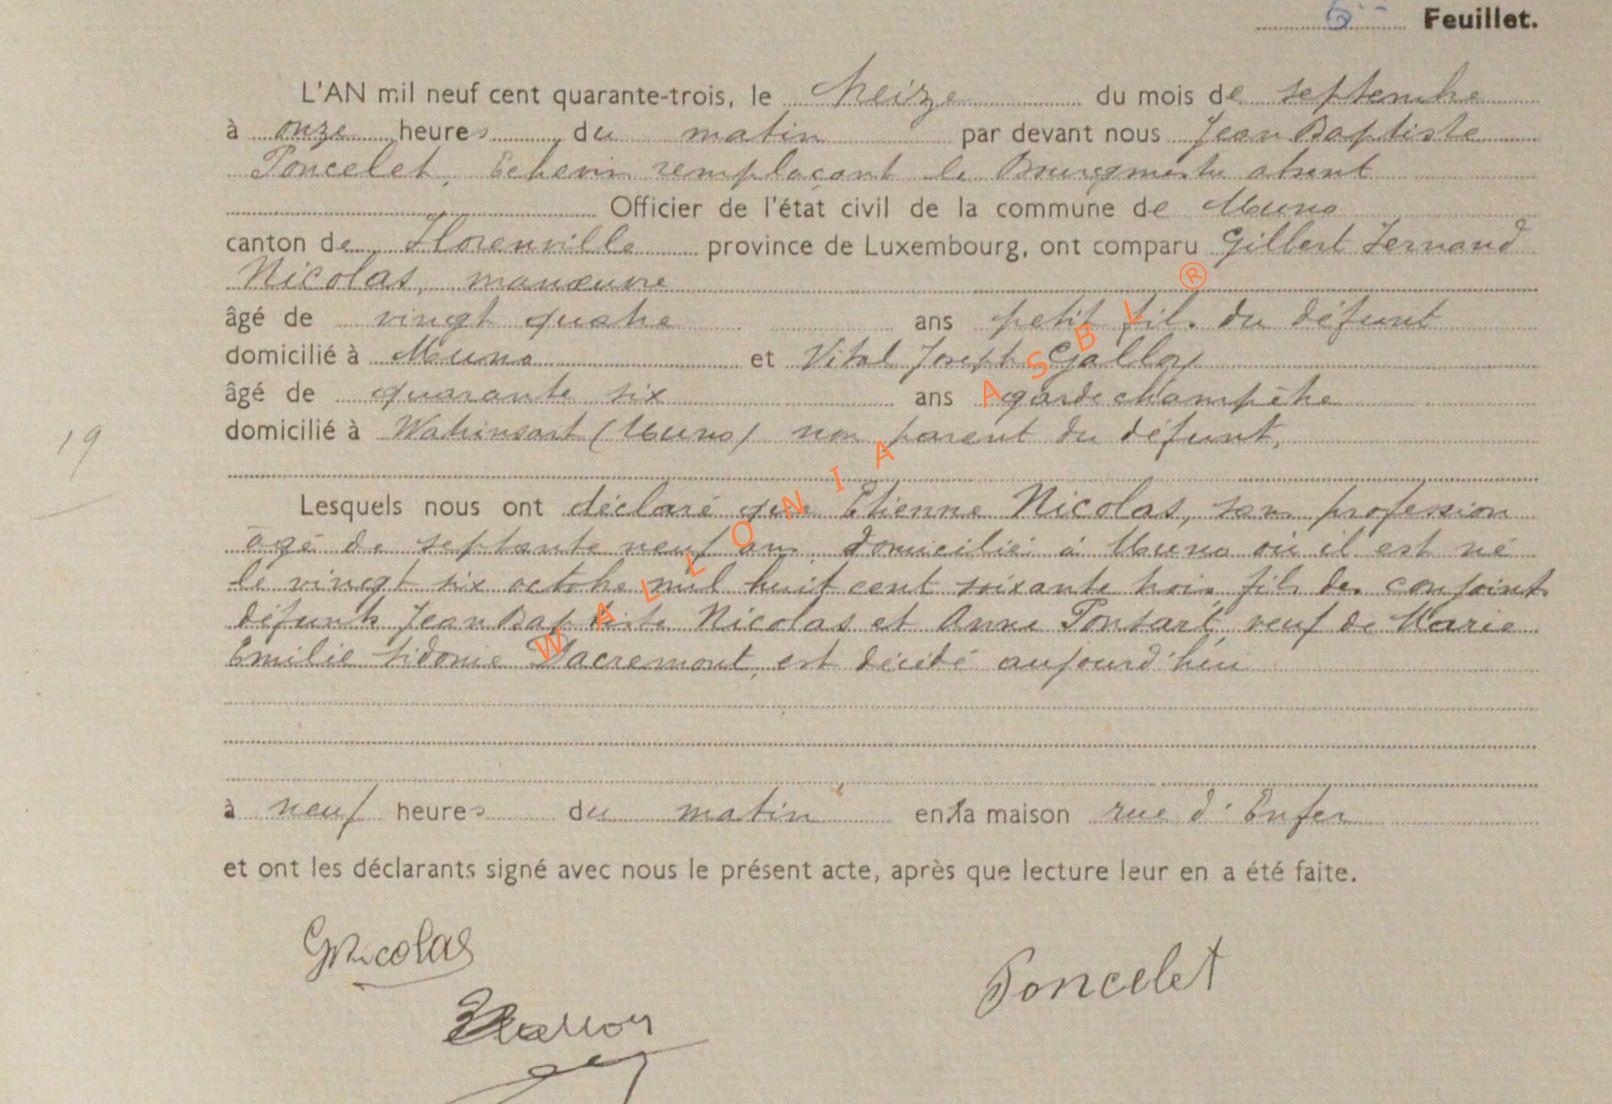 6me Feuillet.
L'AN mil neuf cent quarante-trois, le treize du mois de septembre
à onze heures du matin par devant nous Jean Baptiste
Poncelet, Echevin remplaçant le Bourgmestre absent
Officier de l'état civil de la commune de Muno
canton de Florenville province de Luxembourg, ont comparu Gilbert Fernand
Nicolas, manœuvre
âgé de vingt quatre ans petit fils du défunt
domicilié à Muno et Vital Joseph Galloy
âgé de quarante six ans garde champêtre
domicilié à Watrinsart (Muno) non parent du défunt,
19
Lesquels nous ont déclaré que Etienne Nicolas, sans profession
âgé de septante neuf ans, domicilié à Muno où il est né
le vingt six octobre mil huit cent soixante trois fils des conjoints
défunts Jean Baptiste Nicolas et Anne Ponsart, veuf de Marie
Emilie Sidonie Dacremont, est décédé aujourd'hui
à neuf heures du matin en la maison rue d'Enfer
et ont les déclarants signé avec nous le présent acte, après que lecture leur en a été faite.
GNicolas
Poncelet
WALLONIA ASBL ®